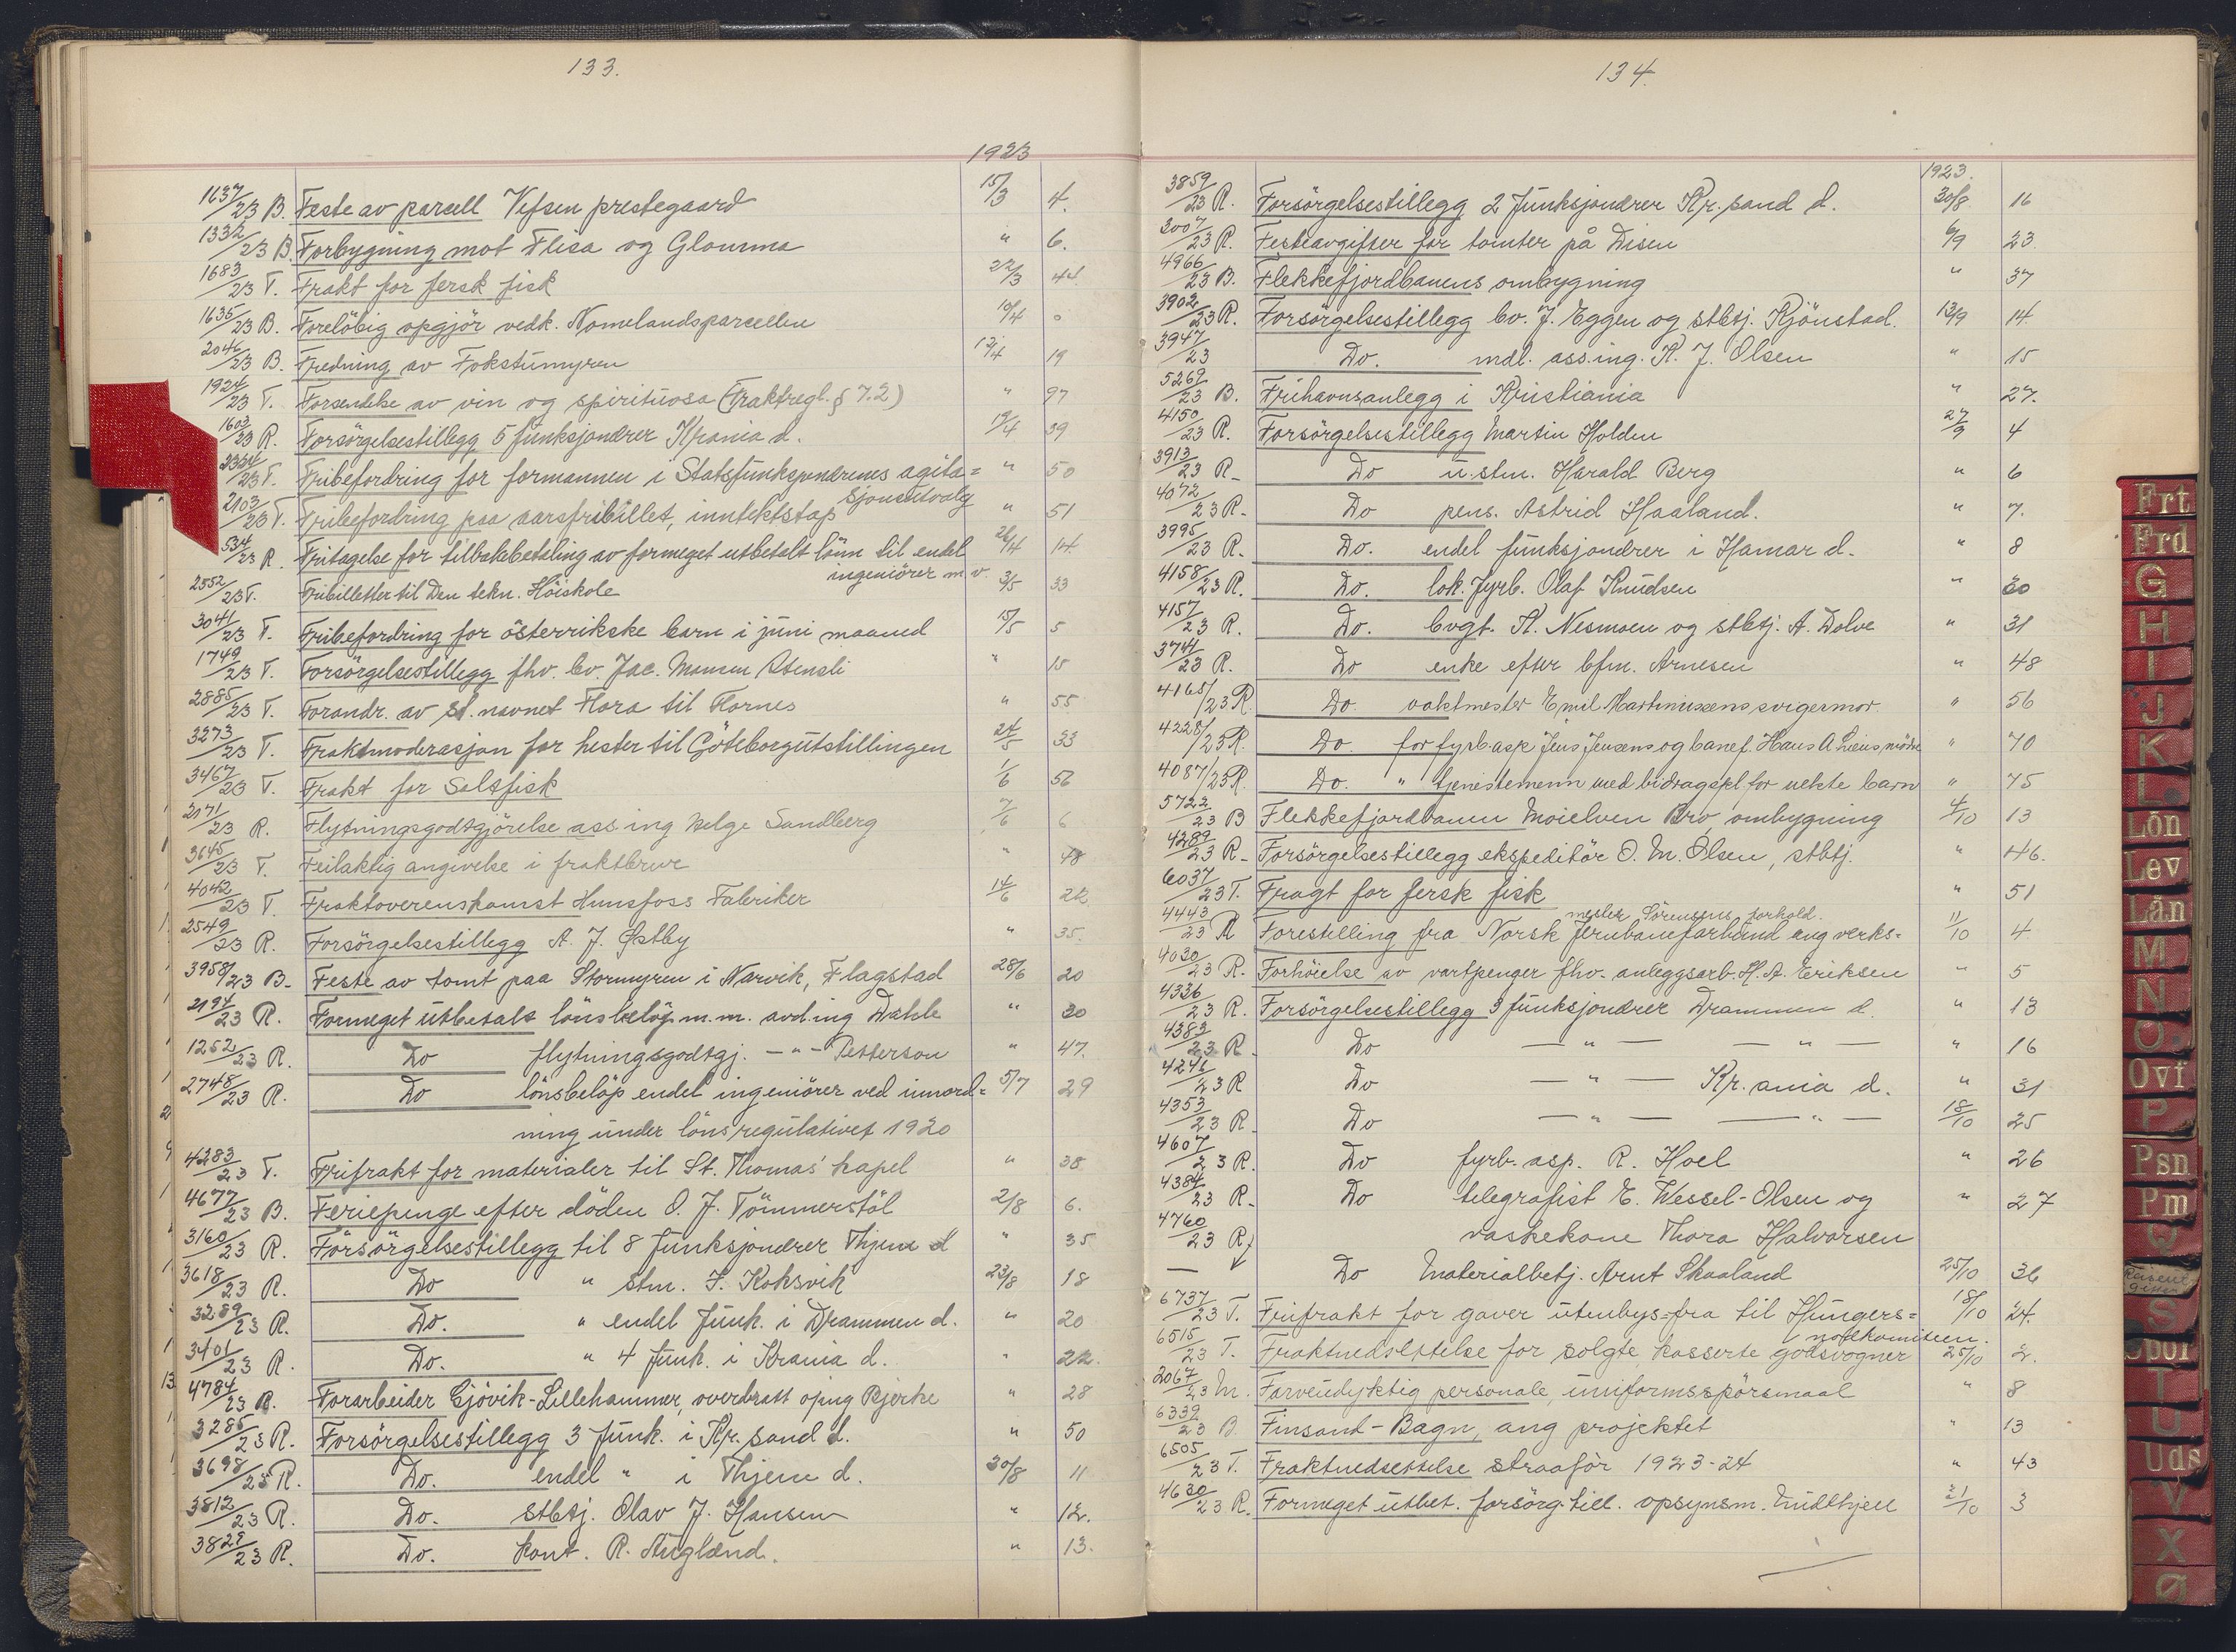 133.
1923
1637/23 B. Feste av parcell Vefsen prestegaard 15/3 4.
1332/23 B. Forbygning mot Flisa og Glomma " 6.
1683/23 T. Frakt for fersk fisk 22/3 44
1635/23 B. Foreløbig opgjör vedk. Nomelandsparcellen 10/4
2046/23 B. Fredning av Fokstumyren 12/4 19
1924/23 T. Forsendelse av vin og spirituosa (Fraktregl. § 7.2) " 97
1603/23 R. Forsörgelsestillegg 5 funksjonærer Krania d. 19/4 39
23T. Fribefordring for formannen i Statsfunksjonærenes agita= " 50
sjonsutvalg
2103/23 T. Fribefordring paa aarsfribillet, inntektstap " 51
534/23 R. Fritagelse for tilbakebetaling av formeget utbetalt lönn til endel 26/4 14
ingeniörer m.v.
2552/23T. Fribilletter til Den tekn. Höiskole 3/5 33
3041/23 T. Fribefordring for österrikske barn i juni maaned 15/5 5
1749/23 T. Forsörgelsestillegg fhv. bv. Jac. Monsen Stensli " 15
2885/23 T. Forandr. av st. navnet Flora til Flornes " 55
3273/23 T. Fraktmoderasjon for hester til Göteborgutstillingen 24/5 33
3467/23 T. Frakt for Saltfisk 1/6 56
2071/23 R. Flytningsgodtgjörelse ass ing Helge Sandberg 7/6 6
3645/23 T. Feilaktig angivelse i fraktbrev " 48
4042/23 T. Fraktoverenskomst Hunsfoss Fabriker 14/6 22
2549/23 R. Forsörgelsestillegg A. J. Østby " 35.
3958/23 B. Feste av tomt paa Stormyren i Narvik, Flagstad 28/6 20
2194/23 R. Formeget utbetalt lönsbelöp m.m. avd.ing Dahle " 30
1252/23 R. Do flytningsgodtgj. — " — Petterson " 47.
2748/23 R. Do lönsbelöp endel ingeniörer ved innord= 5/7 29
ning under lönsregulativet 1920
4283/23 T. Frifrakt for materialer til St. Thomas' kapel " 38
4677/23 B. Feriepenge efter döden O. J. Tömmerstöl 2/8 6.
3160/23 R. Forsörgelsestillegg til 8 funksjonærer Thjem d " 35
3618/23 R. Do " stm. F. Koksvik 23/8 18
3289/23 R. Do. " endel funk. i Drammen d. " 20
3401/23 R. Do. " 4 funk. i Krania d. " 22.
4784/23 B. Forarbeider Gjövik-Lillehammer, overdratt oping Bjerke " 28
3285/23 R. Forsörgelsestillegg 3 funk. i Kr.sand d. " 50
3698/23 R. Do. endel " i Thjem d. 30/8 11
3812/23 R. Do. stbtj. Olav J. Hansen " 12.
3829/23 R. Do. kont. R. Angland. " 13.
134.
1923.
3859/23 R. Forsörgelsestillegg 2 funksjonærer Kr.sand d. 30/8 16
3007/23 R. Festeavgifter for tomter på Disen 6/9 23.
4966/23 B. Flekkefjordbanens ombygning " 37
3902/23 R. Forsörgelsestillegg bv. J. Eggen og stbtj. Kjönstad. 13/9 14.
3947/23 Do. mdl. ass.ing. K. J. Olsen " 15
5269/23 B. Frihavnsanlegg i Kristiania " 27.
4150/23 R. Forsörgelsestillegg Martin Holden 27/9 4
3913/23 R. Do u.stm. Harald Berg " 6
4072/23 R. Do pens. Astrid Haaland. " 7.
3995/23 R. Do. endel funksjonærer i Hamar d. " 8
4158/23 R. Do. lok.fyrb. Olaf Knudsen " 30
4157/23 R. Do. bvgt. K. Nesmoen og stbtj. A. Dolve " 31
3741/23 R. Do enke efter bfm. Arnesen " 48
4165/23 R. Do. vaktmester Emil Martinusens svigermor. " 56
4228/23 R. Do. for fyrb.asp Jens Jensens og banef. Hans A Liens mödre " 70
4087/23 R. Do. " tjenestemenn med bidragspl for uekte barn " 75
5722/23 B Flekkefjordbanen Moielven Bro, ombygning 4/10 13
4289/23 R. Forsörgelsestillegg ekspeditör O. M. Olsen, stbtj. " 46.
6037/23 T. Fragt for fersk fisk " 51
mester Sörensens forhold.
4443/23 R Forestilling fra Norsk Jernbaneforbund ang verks= 11/10 4
4030/23 R. Forhöielse av vartpenger fhv. anleggsarb. H. A. Eriksen " 5
4336/23 R. Forsörgelsestillegg 3 funksjonærer Drammen d. " 13
4383/23 R Do — " — — " — " 16
4246/23 R Do — " — Kr.ania d. " 31
4353/23 R Do — " — — " — 18/10 25
4607/23 R. Do fyrb. asp. R. Hoel " 26
4384/23 R. Do telegrafist E. Wessel-Olsen og " 27
4760/23 R. vaskekone Thora Halvorsen
— " Do Materialbetj. Arnt Skaaland 25/10 36
6737/23 T. Frifrakt for gaver utenbys-fra til Hungers= 18/10 24.
nödkomiteen.
6515/23 T. Fraktnedsettelse for solgte kasserte godsvogner 25/10 2.
2067/23 M. Farveudyktig personale, uniformsspörsmaal " 8
6339/23 B. Finsand-Bagn, ang projektet " 13
6505/23 T. Fraktnedsettelse straafôr 1923-24 " 43
4630/23 R. Formeget utbet. forsörg.till. opsynsm. Midthjell 31/10 3
Frt
Frd
G
H
I
J
K
L
Lön
Lev
Lån
M
N
O
Ovf
P
Psn
Pm
Q
S
Spor
T
U
Uds
V
X
Ø